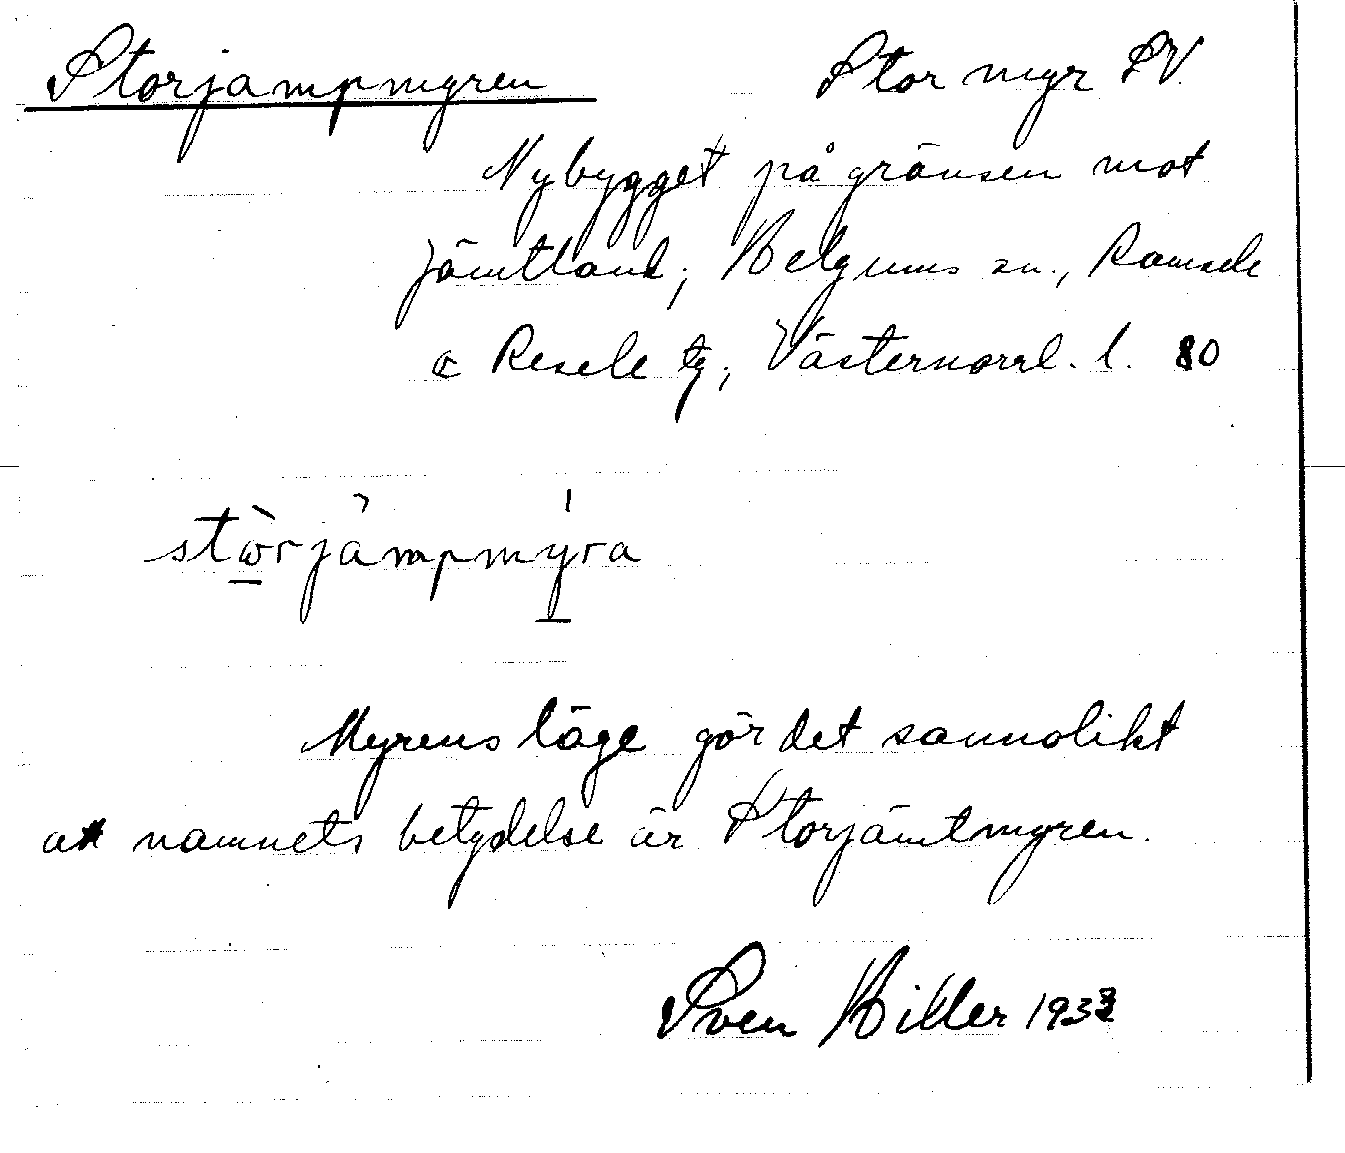 Storjampmyren Stor myr SV.
Nybygget på gränsen mot
Jämtland; Helgums sn., Ramsele
o Resele tg; Västernorrl. l. 80
stòrjàmpmýra
Myrens läge gör det sannolikt
att namnets betydelse är Storjämtmyren.
Sven Hiller